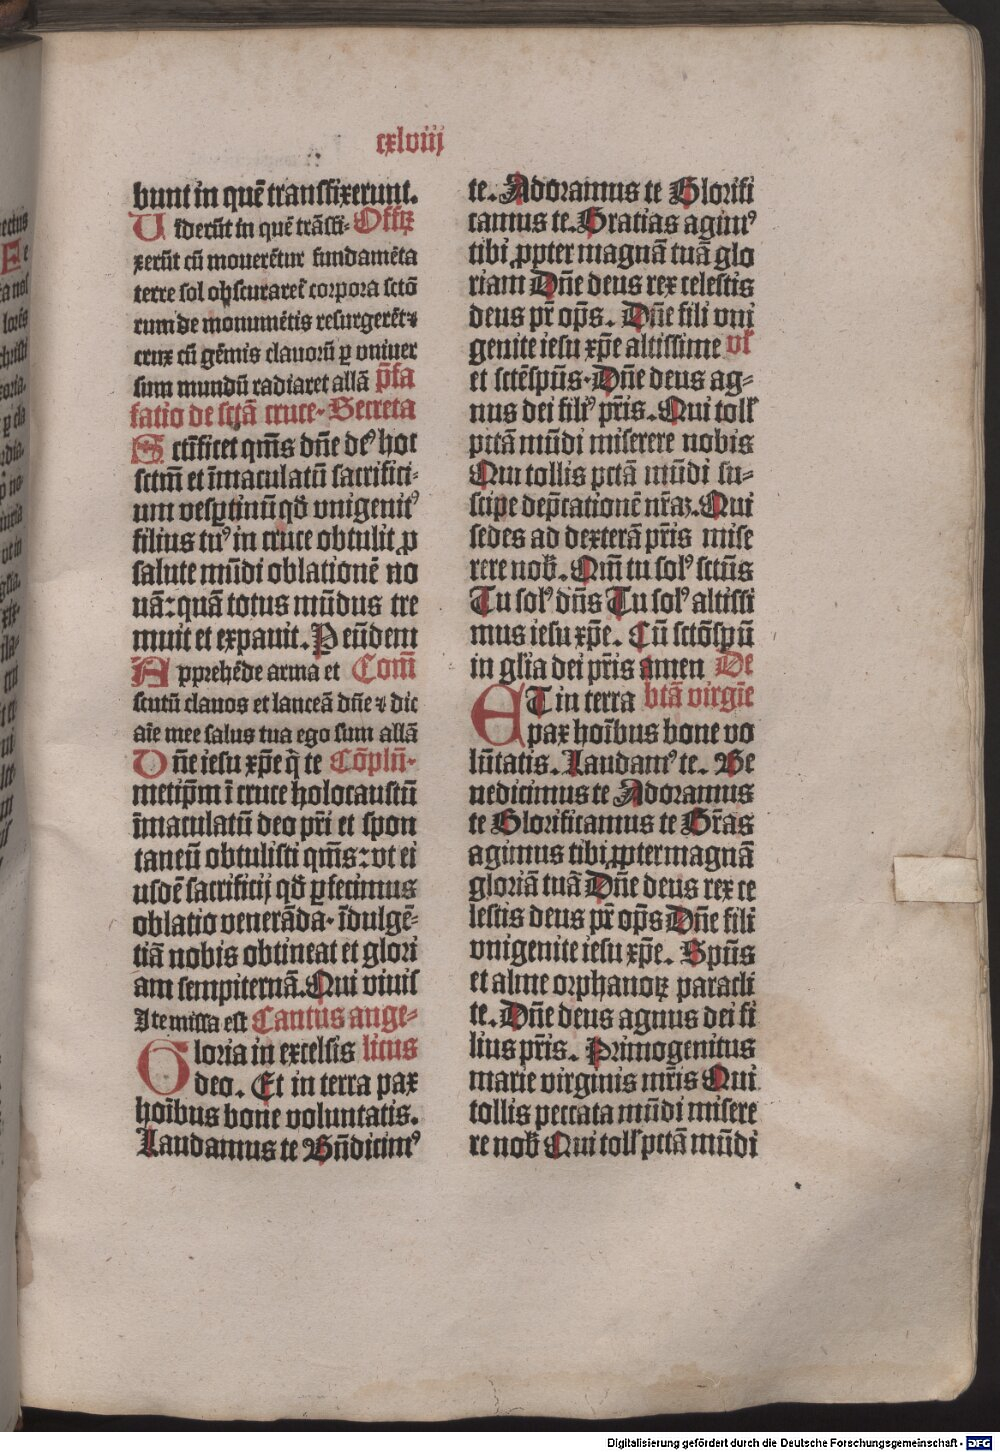 cxlviij
bunt in quē transfixerunt.
Uiderūt in quē trāsfi- Offꝝ
xerūt cū mouerētur fundamēta
terre sol obscuraret̉ corpora sctō
rum de monumētis resurgerēt ⁊
crux cū gēmis clauorū ꝑ vniuer
sum mundū radiaret allā p̄fa
fatio de sctā cruce. Secreta
Sctīficet qm̄s dn̄e deꝰ hoc
sctm̄ et īmaculatū sacrifici-
um vesꝑtinū qd̄ vnigenitꝰ
filius tuꝰ in cruce obtulit ꝓ
salute mūdi oblationē no
uā: quā totus mūdus tre
muit et expauit. P eūdem
Apprehēde arma et Com̄
scutū clauos et lanceā dn̄e ⁊ dic
aīe mee salus tua ego sum allā
Dn̄e iesu xp̄e q̄ te Cōpln̄.
metip̄m ī cruce holocaustū
īmaculatū deo pr̄i et spon
taneū obtulisti qm̄s: vt ei
usdē sacrificij qd̄ ꝑfecimus
oblatio venerāda. īdulgē-
tiā nobis obtineat et glori
am sempiternā. Qui viuis
Ite missa est Cantus ange-
Gloria in excelsis licus
deo. Et in terra pax
hoībus bone voluntatis.
Laudamus te Būdicimꝰ
te. Adoramus te Glorifi
camus te. Gratias agimꝰ
tibi ꝓpter magnā tuā glo
riam Dn̄e deus rex celestis
deus pr̄ op̄s. Dn̄e fili vni
genite iesu xp̄e altissime vl̄
et sctēsp̄ūs. Dn̄e deus ag-
nus dei filiꝰ pr̄is. Qui toll̉
pctā mūdi miserere nobis
Qui tollis pctā mūdi su-
scipe dep̄cationē nr̄aꝫ. Qui
sedes ad dexterā pr̄is mise
rere nob̄. Qm̄ tu solꝰ sctūs
Tu solꝰ dn̄s Tu solꝰ altissi
mus iesu xp̄e. Cū sctōspū
in gl̄ia dei pr̄is amen De
ET in terra btā virgīe
pax hoībus bone vo
lūtatis. Laudamꝰ te. Be
nedicimus te Adoramus
te Glorificamus te Gr̄as
agimus tibi ꝓpter magnā
gloriā tuā Dn̄e deus rex ce
lestis deus pr̄ op̄s Dn̄e fili
vnigenite iesu xp̄e. Spūs
et alme orphanoꝝ paracli
te. Dn̄e deus agnus dei fi
lius pr̄is. Primogenitus
marie virginis mr̄is Qui
tollis peccata mūdi misere
re nob̄ Qui toll̉ pctā mūdi
Digitalisierung gefördert durch die Deutsche Forschungsgemeinschaft - DFG